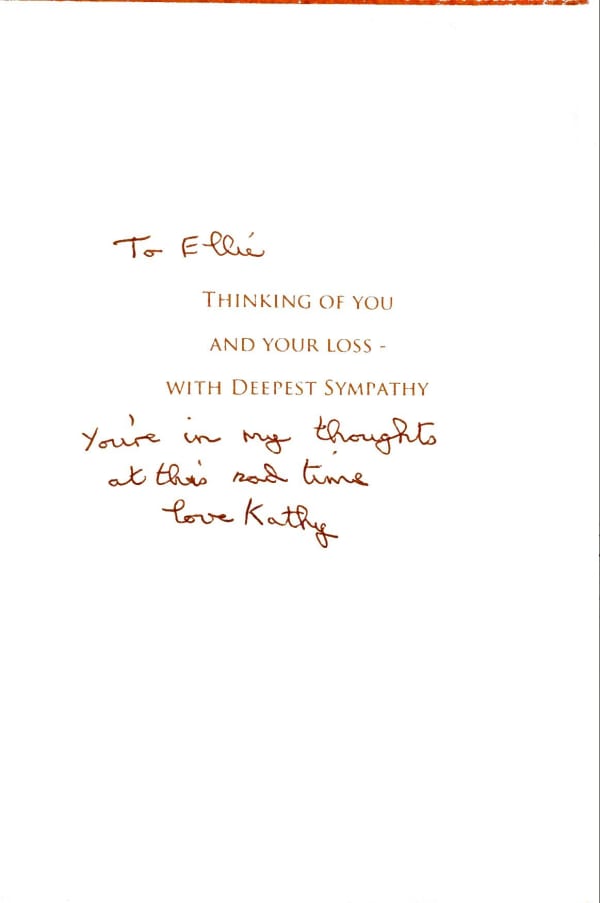 To Ellie
THINKING OF YOU
AND YOUR LOSS -
WITH DEEPEST SYMPATHY
You're in my thoughts
at this sad time
love Kathy